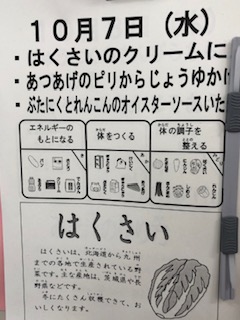 10月7日（水）
・はくさいのクリームに
・あつあげのピリからじょうゆかけ
・ぶたにくとれんこんのオイスターソースいた
エネルギーの
もとになる
体をつくる
体の調子を
整える
はくさい
はくさいは、北海道から九州
までの各地で生産されている野
菜です。主な産地は、茨城県や長
野県などです。
冬にたくさん収穫できて、お
いしくなります。